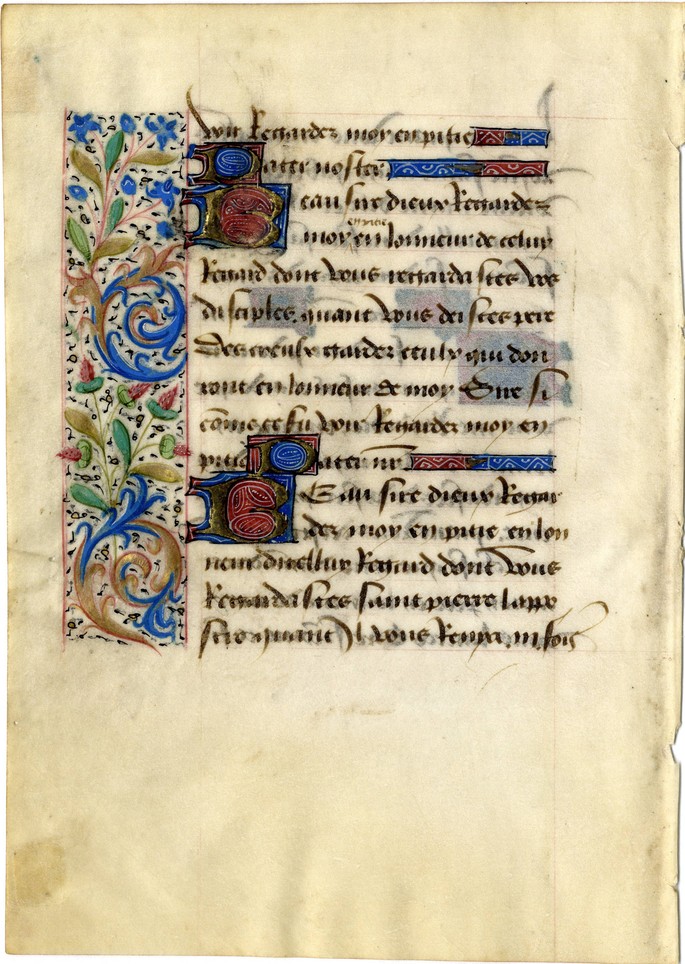 voir Regardez moy en pitie
Pater noster
Beau sire dieux Regardez
en pitie
moy en lonneur de celuy
Regard dont vous regardastes vos
disciples quant vous deistes pere
des cieulx gardez ceulx qui don
ront en lonneur de moy Sire si
come ce fu voir Regardez moy en
pitie Pater nr
BEau sire dieux Regar
dez moy en pitie en lon
neur dicelluy Regard dont vous
Regardastes saint pierre lappo
stre quant Il vous Renya .iii. fois